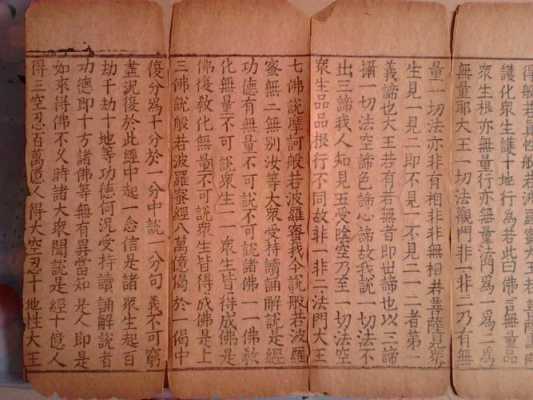 得般若眞性般若波羅蜜大王若菩薩
護化衆生護十地行為若此白佛言無量品
衆生根亦無量行亦無量法門為一為二為
無量耶大王一切法觀門非一非二乃有無
量一切法亦非有相非非無相若菩薩見衆
生見一見二即不見一不見二一二者第一
義諦也大王若有若無者即世諦也以三諦
攝一切法空諦色諦心諦故我說一切法不
出三諦我人知見五受陰空乃至一切法空
衆生品品根行不同故非一非二法門大王
七佛說摩訶般若波羅蜜我今說般若波羅
蜜無二無別汝等大衆受持讀誦解說是經
功德有無量不可說不可說諸佛一一佛教
化無量不可說衆生一一衆生皆得成佛是
佛復教化無量不可說衆生皆得成佛是上
三佛說般若波羅蜜經八萬億偈於一偈中
復分為十分於一分中說一分句義不可窮
盡況復於此經中起一念信是諸衆生超百
劫千劫十地等功德何況受持讀誦解說者
功德即十方諸佛等無有異當知是人即是
如來得佛不久時諸大衆聞說是經十億人
得三空忍百萬億人得大空忍十地性大王